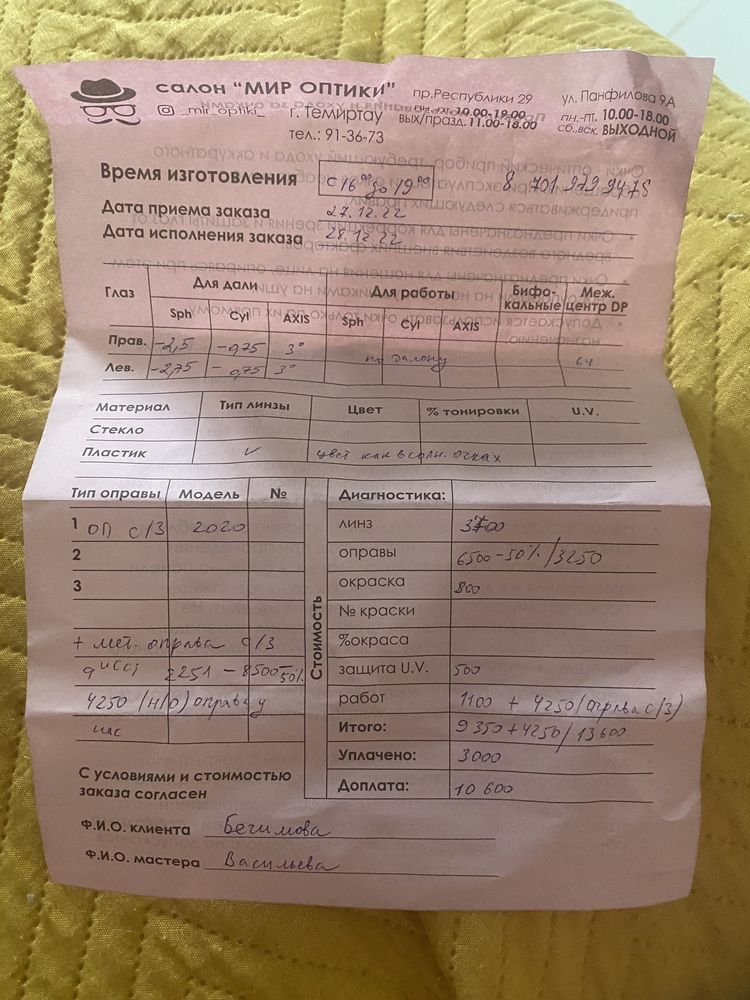 салон "МИР ОПТИКИ" пр.Республики 29 ул. Панфилова 9А
_mir_optiki_ г. Темиртау пн.-пт. 10.00-19.00 пн.-пт. 10.00-18.00
тел.: 91-36-73 вых/празд. 11.00-18.00 сб.вск. ВЫХОДНОЙ
Время изготовления с 16⁰⁰ до 19⁰⁰ 8 701 979 9475
Дата приема заказа 27.12.22
Дата исполнения заказа 28.12.22
Глаз Для дали Для работы Бифокальные Меж. центр DP
Sph Cyl AXIS Sph Cyl AXIS
Прав. -2,5 -0,75 3° по эталону 64
Лев. -2,75 -0,75 3°
Материал Тип линзы Цвет % тонировки U.V.
Стекло
Пластик ✓ цвет как в солн. очках
Тип оправы Модель № Стоимость Диагностика:
1 ОП с/з 2020 линз 3700
2 оправы 6500-50%/3250
3 окраска 800
№ краски
+ мет. оправа с/з %окраса
2251 - 8500-50% защита U.V. 500
4250 (н/о) оправа у работ 1100 + 4250/оправа с/з)
нас Итого: 9350+4250/13600
Уплачено: 3000
С условиями и стоимостью Доплата: 10 600
заказа согласен
Ф.И.О. клиента Бегимова
Ф.И.О. мастера Васильева